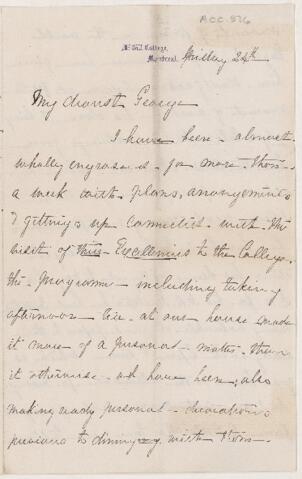 ACC. 826
McGill College,
Montreal.
Friday 24th
My dearest George
I have been almost
wholly engrossed for more than
a week with plans, arrangements
& getting up connected with the
visit of their Excellencies to the College.
the programme including taking
afternoon tea at our house made
it more of a personal matter than
it otherwise would have been, also
making ready personal decorations
previous to dining with them